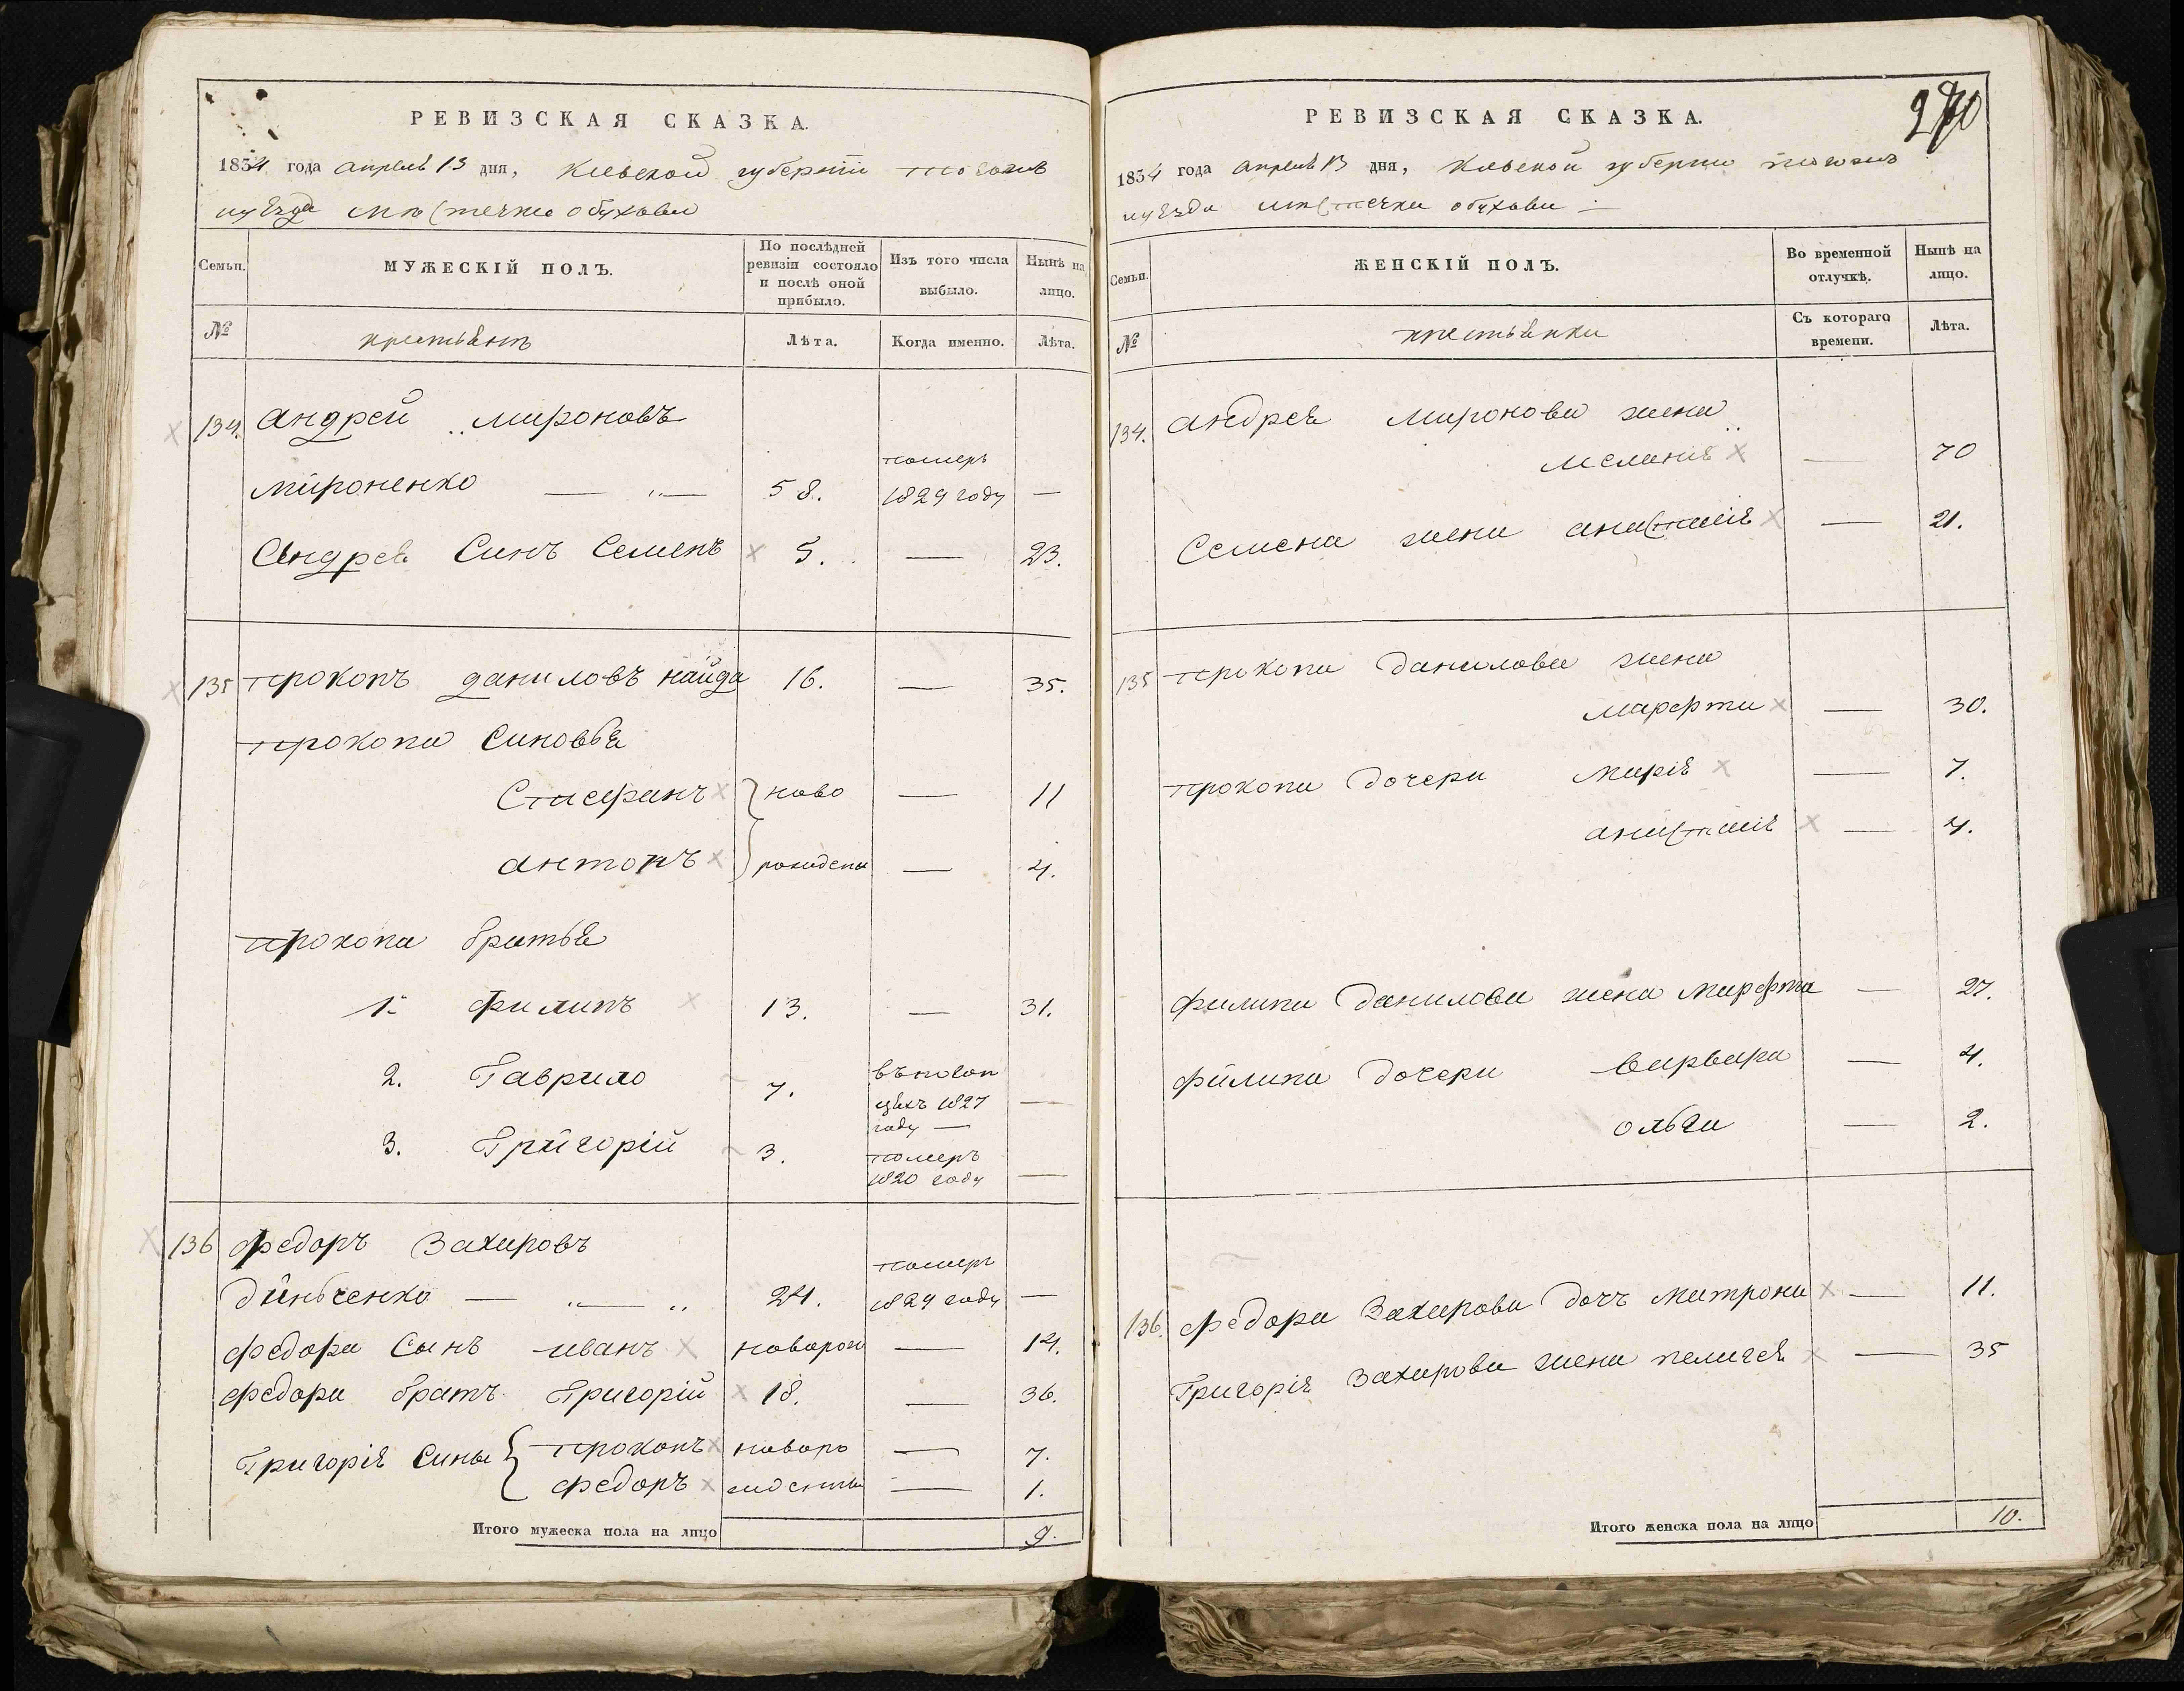 РЕВИЗСКАЯ СКАЗКА.
1834 года апреля 13 дня, Киевской губернии тогожъ
уѣзда мѣстечка обухова
Семьи.
МУЖЕСКІЙ ПОЛЪ.
По послѣдней ревизіи состояло и послѣ оной прибыло.
Изъ того числа выбыло.
Нынѣ на лицо.
№
крестьянъ
Лѣта.
Когда именно.
Лѣта.
134. андрей мироновъ
мироненко — „ — 58. померъ 1829 году —
Андрея Синъ Семенъ 5. — 23.
135 прокопъ даниловъ найда 16. — 35.
прокопа Синовья
Стефанъ } ново — 11
антонъ } рождены — 4.
прокопа братья
1. филипъ 13. — 31.
2. Гаврило 7. 1827 году — —
3. Григорій 3. померъ 1820 году —
136 федоръ Захаровъ
дѣнбченко — „ — „ 24. померъ 1829 году —
федора Сынъ иванъ новорож — 14.
федора братъ Григорій 18. — 36.
Григорія Сины { прокопъ новоро — 7.
федоръ жденны — 1.
Итого мужеска пола на лицо 9.
РЕВИЗСКАЯ СКАЗКА.
270
1834 года апреля 13 дня, Киевской губерни тогожъ
уѣзда мѣстечка обухова —
Семьи.
ЖЕНСКІЙ ПОЛЪ.
Во временной отлучкѣ.
Нынѣ на лицо.
№
крестьянки
Съ котораго времени.
Лѣта.
134. андрея миронова жена
меланія — 70
Семена жена анастасія — 21.
135 прокопа данилова жена
марфта — 30.
прокопа дочери марія — 7.
анастасія — 4.
филипа данилова жена марфта — 27.
филипа дочери варвара — 4.
ольга — 2.
136. федора Захарова дочъ матрона — 11.
Григорія Захарова жена пелагея — 35
Итого женска пола на лицо 10.